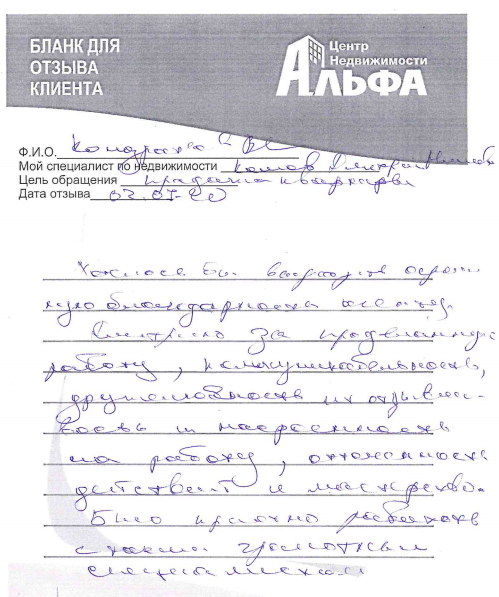 БЛАНК ДЛЯ
ОТЗЫВА
КЛИЕНТА
Центр
Недвижимости
АЛЬФА
Ф.И.О.
Мой специалист по недвижимости
Цель обращения продажа квартиры
Дата отзыва 02.07.20
Хотелось бы выразить огром
ную благодарность
Дмитрию за проделанную
работу, коммуникабельность,
дружелюбность и отзывчи-
вость и настроенность
на работу, отточенность
действий и мастерство.
Было приятно работать
с таким грамотным
специалистом